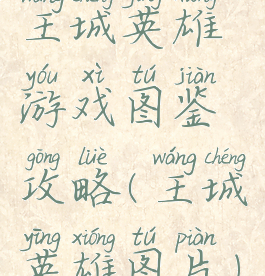 wáng chéng yīng xióng
王城英雄
yóu xì tú jiàn
游戏图鉴
gōng lüè wáng chéng
攻略(王城
yīng xióng tú piàn
英雄图片)